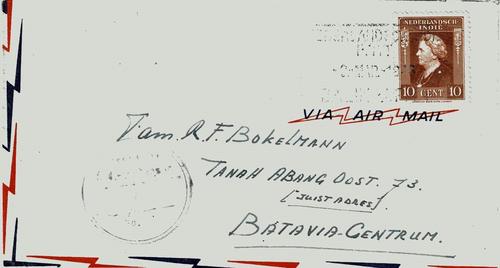 NEDERLANDSCH
INDIË
10 CENT 10
VIA AIR MAIL
R.F. BOKELMANN
TANAH ABANG OOST. 73.
[JUIST ADRES]
BATAVIA-CENTRUM.